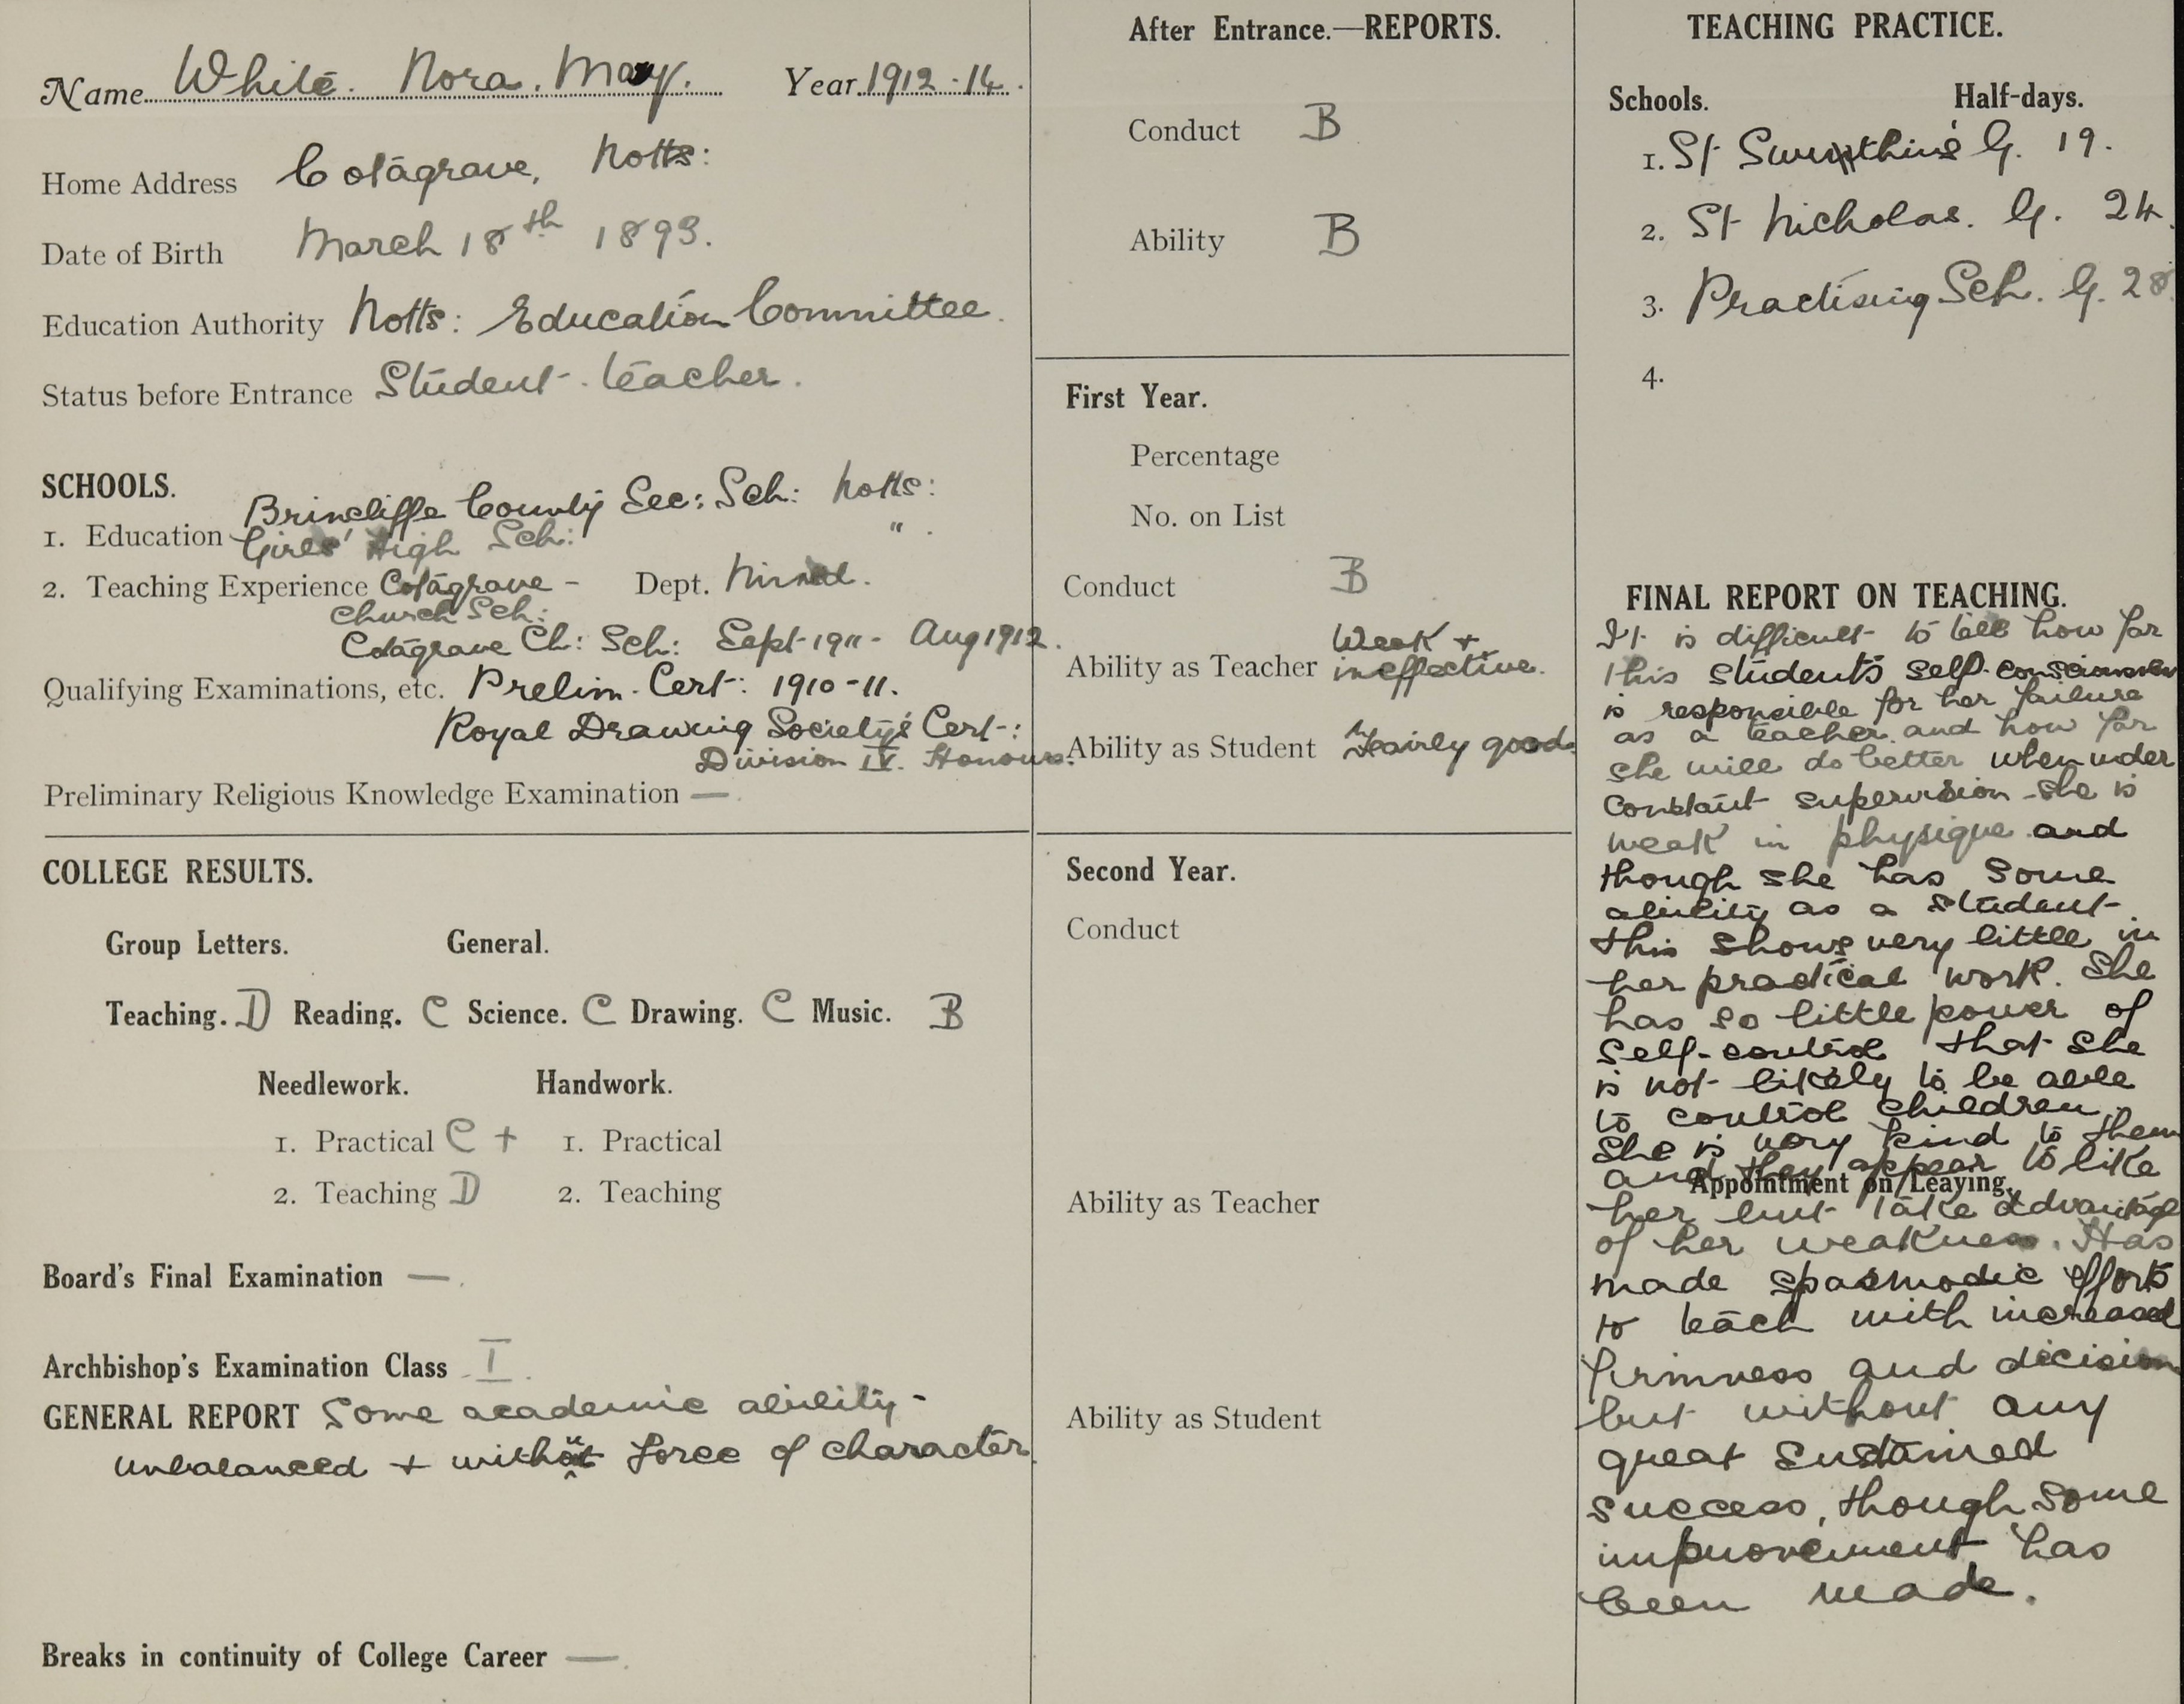 Name White. Nora. May. Year 1912-14.
Home Address Cotagrave, Notts:
Date of Birth March 18th 1893.
Education Authority Notts: Education Committee.
Status before Entrance Student-teacher.
SCHOOLS.
1. Education Brincliffe County Sec: Sch: Notts:
Girls' High Sch: " .
2. Teaching Experience Cotagrave - Dept. Mixed.
Church Sch:
Cotagrave Ch: Sch: Sept-1911- Aug 1912.
Qualifying Examinations, etc. Prelim. Cert: 1910-11.
Royal Drawing Society's Cert-:
Division IV. Honours.
Preliminary Religious Knowledge Examination —
COLLEGE RESULTS.
Group Letters. General.
Teaching. D Reading. C Science. C Drawing. C Music. B
Needlework. Handwork.
1. Practical C + 1. Practical
2. Teaching D 2. Teaching
Board's Final Examination — .
Archbishop's Examination Class I .
GENERAL REPORT Some academic ability -
unbalanced + without force of character.
Breaks in continuity of College Career — .
After Entrance.—REPORTS.
Conduct B
Ability B
First Year.
Percentage
No. on List
Conduct B
Ability as Teacher Weak + ineffective.
Ability as Student Fairly good.
Second Year.
Conduct
Ability as Teacher
Ability as Student
TEACHING PRACTICE.
Schools. Half-days.
1. St Swithin's G. 19.
2. St Nicholas. G. 24.
3. Practising Sch. G. 28
4.
FINAL REPORT ON TEACHING.
It is difficult to tell how far
this student's self-consciousness
is responsible for her failure
as a teacher and how far
she will do better when under
constant supervision - she is
weak in physique and
though she has some
ability as a student
this shows very little in
her practical work. She
has so little power of
self-control that she
is not likely to be able
to control children.
She is very kind to them
and they appear to like
Appointment on Leaving.
her but take advantage
of her weakness. Has
made spasmodic efforts
to teach with increased
firmness and decision
but without any
great sustained
success, though some
improvement has
been made.